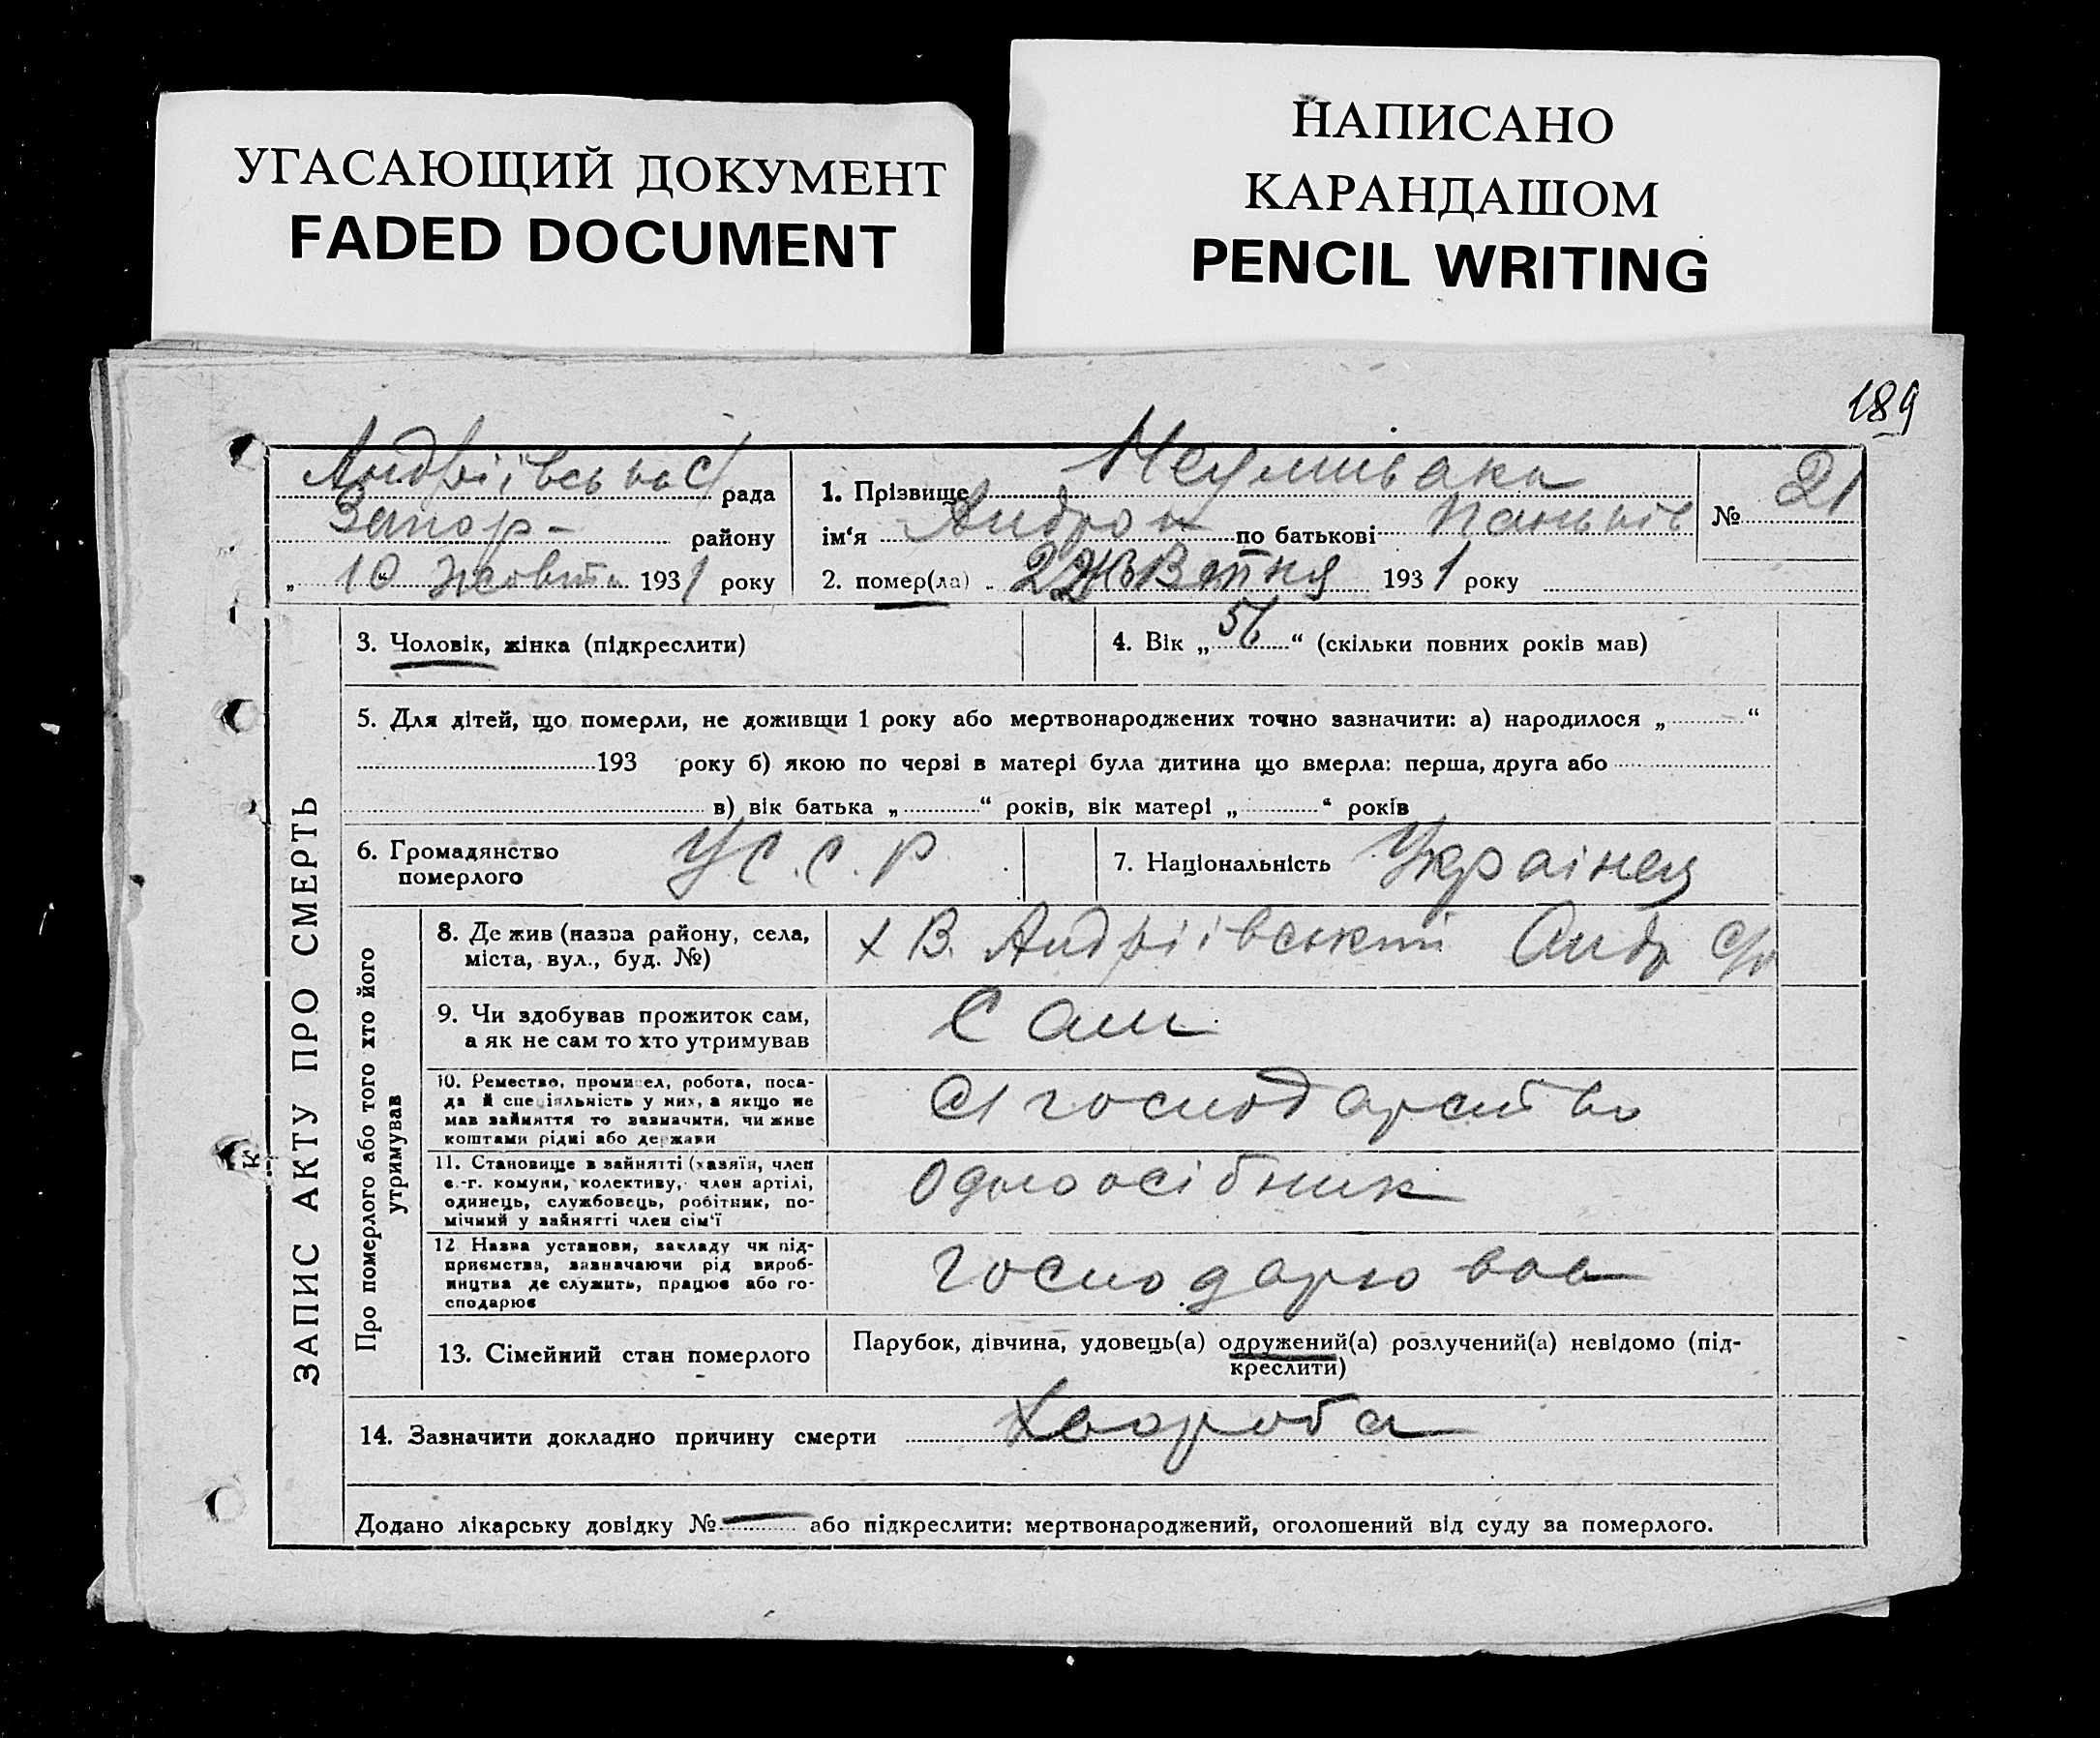 УГАСАЮЩИЙ ДОКУМЕНТ
FADED DOCUMENT
НАПИСАНО
КАРАНДАШОМ
PENCIL WRITING
189
Андріївська с/рада
Запор- району
„ 10 " жовтн 1931 року
1. Прізвище
ім‘я Андрон по батькові Паньків
2. помер(ла) 22 1931 року
№ 21
ЗАПИС АКТУ ПРО СМЕРТЬ
3. Чоловік, жінка (підкреслити)
4. Вік „ 56 “ (скільки повних років мав)
5. Для дітей, що померли, не доживши 1 року або мертвонароджених точно зазначити: а) народилося „ “
193 року б) якою по черзі в матері була дитина що вмерла: перша, друга або
в) вік батька „ “ років, вік матері „ “ років
6. Громадянство
померлого
УС.С.Р
7. Національність Українец
Про померлого або того хто його
утримував
8. Де жив (назва району, села,
міста, вул., буд. №)
х В. Андріївський Андр с/р
9. Чи здобував прожиток сам,
а як не сам то хто утримував
Сам
10. Ремество, промисел, робота, поса-
да й спеціяльність у них, а якщо не
мав зайняття то зазначити, чи живе
коштами рідні або держави
с/господарство
11. Становище в зайнятті (хазяїн, член
с.-г. комуни, колективу, член артілі,
одинець, службовець, робітник, по-
мічний у зайнятті член сім‘ї
Одноосібник
12 Назва установи, закладу чи під-
приємства, зазначаючи рід вироб-
ництва де служить, працює або го-
сподарює
господарював
13. Сімейний стан померлого
Парубок, дівчина, удовець(а) одружений(а) розлучений(а) невідомо (під-
креслити)
14. Зазначити докладно причину смерти Хвороба
Додано лікарську довідку № або підкреслити: мертвонароджений, оголошений від суду за померлого.